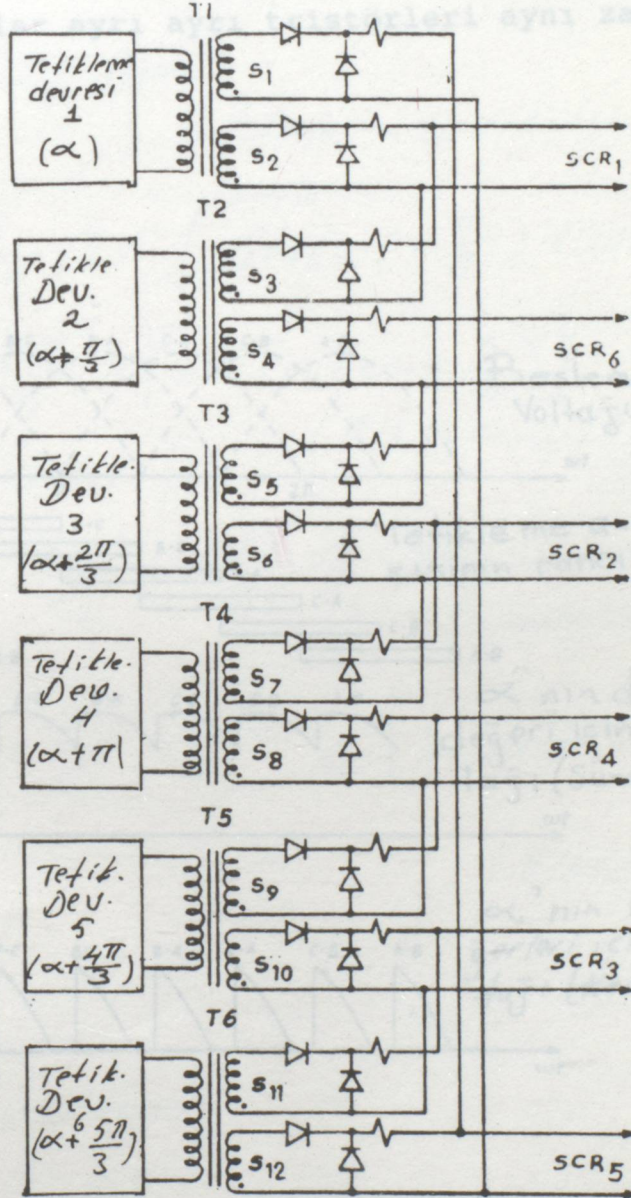 T1
Tetikleme
devresi
1
(α)
S1
S2
SCR1
T2
Tetikle.
Dev.
2
(α+π/3)
S3
S4
SCR6
T3
Tetikle.
Dev.
3
(α+2π/3)
S5
S6
SCR2
T4
Tetikle.
Dev.
4
(α+π)
S7
S8
SCR4
T5
Tetik.
Dev.
5
(α+4π/3)
S9
S10
SCR3
T6
Tetik.
Dev.
6
(α+5π/3)
S11
S12
SCR5
ayrı ayrı tristörleri aynı